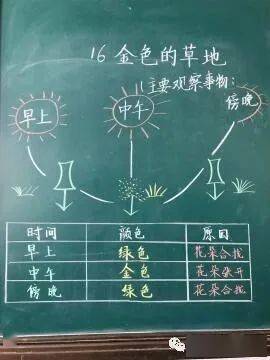 16 金色的草地
(主要观察事物:
早上 中午 傍晚
时间 颜色 原因
早上 绿色 花朵合拢
中午 金色 花朵张开
傍晚 绿色 花朵合拢